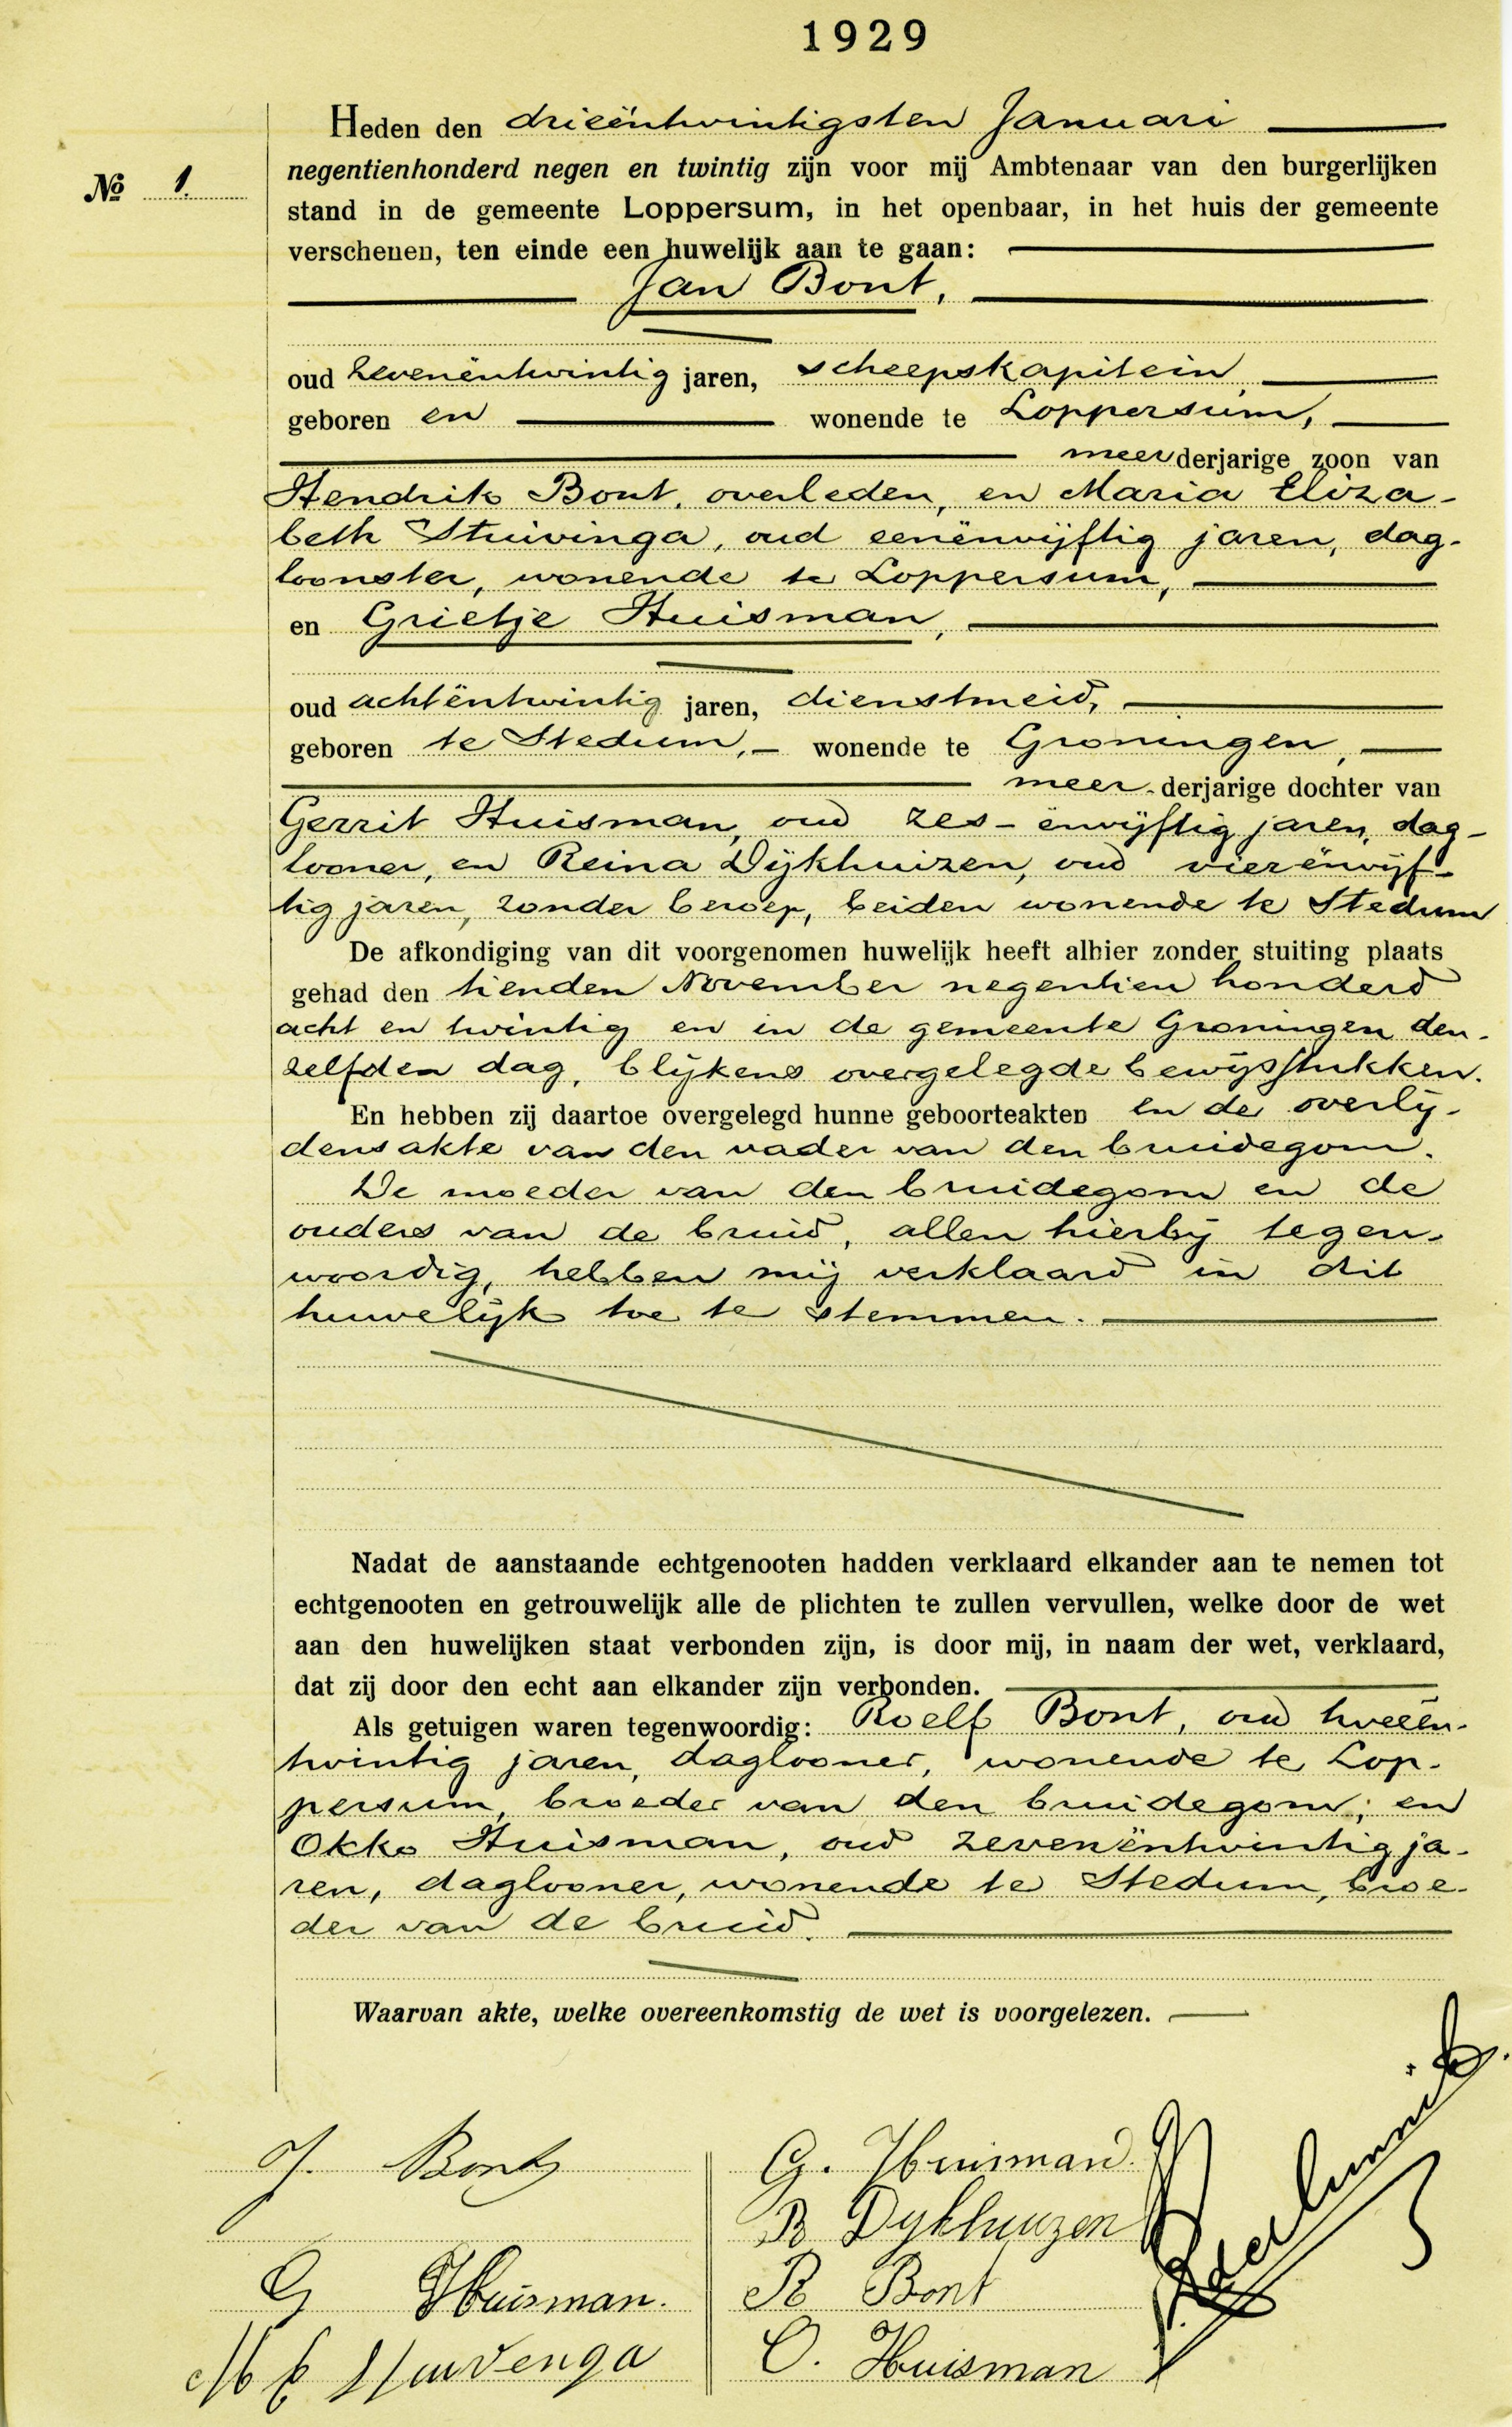 1929
Heden den drieëntwintigsten Januari
negentienhonderd negen en twintig zijn voor mij Ambtenaar van den burgerlijken
No 1.
stand in de gemeente Loppersum, in het openbaar, in het huis der gemeente
verschenen, ten einde een huwelijk aan te gaan:
Jan Bont,
oud zevenëntwintig jaren, scheepskapitein,
geboren en wonende te Loppersum,
meerderjarige zoon van
Hendrik Bont, overleden, en Maria Eliza-
beth Stuivinga, oud eenënvijftig jaren, dag-
loonster, wonende te Loppersum,
en Grietje Huisman,
oud achtëntwintig jaren, dienstmeid,
geboren te Stedum, wonende te Groningen,
meer-derjarige dochter van
Gerrit Huisman, oud zes-ënvijftig jaren, dag-
looner, en Reina Dijkhuizen, oud vierënvijf-
tig jaren, zonder beroep, beiden wonende te Stedum
De afkondiging van dit voorgenomen huwelijk heeft alhier zonder stuiting plaats
gehad den tienden November negentien honderd
acht en twintig en in de gemeente Groningen den-
zelfden dag, blijkens overgelegde bewijsstukken.
En hebben zij daartoe overgelegd hunne geboorteakten en de overlij-
densakte van den vader van den bruidegom.
De moeder van den bruidegom en de
ouders van de bruid, allen hierbij tegen-
woordig, hebben mij verklaard in dit
huwelijk toe te stemmen.
Nadat de aanstaande echtgenooten hadden verklaard elkander aan te nemen tot
echtgenooten en getrouwelijk alle de plichten te zullen vervullen, welke door de wet
aan den huwelijken staat verbonden zijn, is door mij, in naam der wet, verklaard,
dat zij door den echt aan elkander zijn verbonden.
Als getuigen waren tegenwoordig: Roelf Bont, oud tweeën-
twintig jaren, daglooner, wonende te Lop-
persum, broeder van den bruidegom; en
Okko Huisman, oud zevenëntwintig ja-
ren, daglooner, wonende te Stedum, broe-
der van de bruid.
Waarvan akte, welke overeenkomstig de wet is voorgelezen.
J. Bont
G Huisman.
M E Stuvenga
G. Huisman.
R Dykhuizen
R Bont
O. Huisman